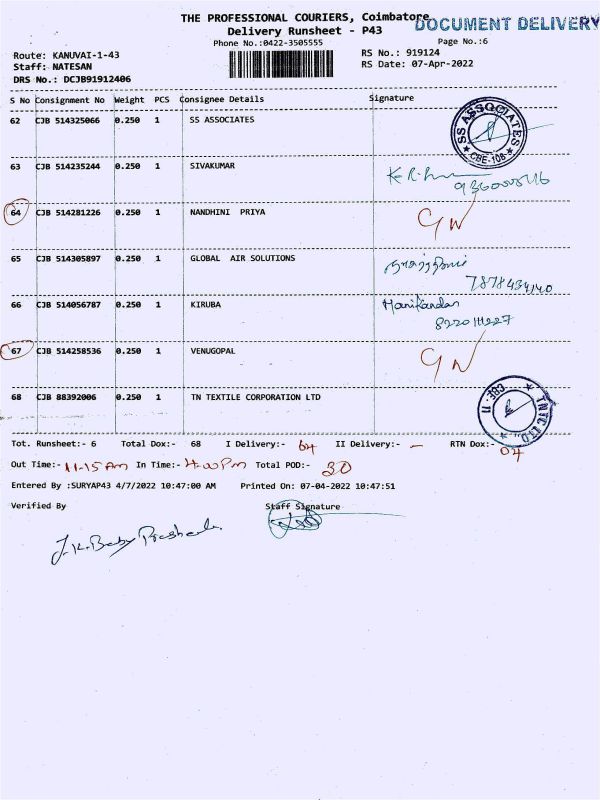 THE PROFESSIONAL COURIERS, Coimbatore
DOCUMENT DELIVERY
Delivery Runsheet - P43
Phone No.:0422-3505555
Page No.:6
Route: KANUVAI-1-43
RS No.: 919124
Staff: NATESAN
RS Date: 07-Apr-2022
DRS No.: DCJB91912406
S No Consignment No Weight PCS Consignee Details Signature
62 CJB 514325066 0.250 1 SS ASSOCIATES
SS ASSOCIATES
CBE-108
63 CJB 514235244 0.250 1 SIVAKUMAR
64 CJB 514281226 0.250 1 NANDHINI PRIYA
65 CJB 514305897 0.250 1 GLOBAL AIR SOLUTIONS
66 CJB 514056787 0.250 1 KIRUBA
Manikandan
67 CJB 514258536 0.250 1 VENUGOPAL
68 CJB 88392006 0.250 1 TN TEXTILE CORPORATION LTD
CBE-11
TNTC LTD.,
Tot. Runsheet:- 6 Total Dox:- 68 I Delivery:- 64 II Delivery:- - RTN Dox:- 04
Out Time:- 11-15 Am In Time:- 4-00 Pm Total POD:- 30
Entered By :SURYAP43 4/7/2022 10:47:00 AM Printed On: 07-04-2022 10:47:51
Verified By Staff Signature